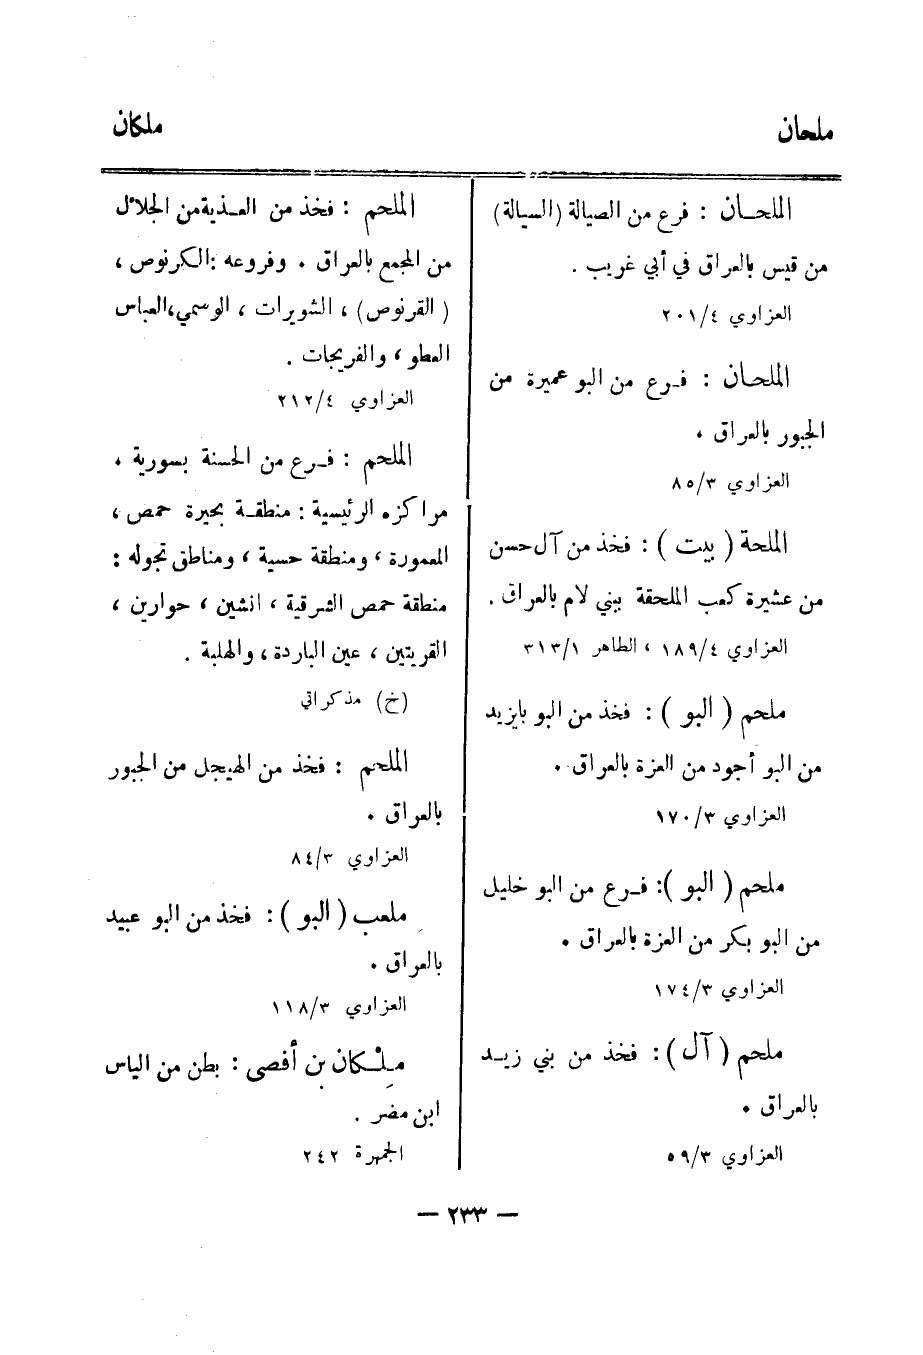 ملحان
ملكان
الملحـان : فرع من الصيالة (السيالة)
من قيس بالعراق في أبي غريب .
العزاوي ٢٠١/٤
الملحـان : فـرع من البو عميرة من
الجبور بالعراق .
العزاوي ٨٥/٣
الملحة ( بيت ) : فخذ من آل حسن
من عشيرة كعب الملحقة ببني لام بالعراق .
العزاوي ١٨٩/٤ ، الطاهر ٣١٣/١
ملحم ( البو ) : فخذ من البو بايزيد
من البو أجود من العزة بالعراق .
العزاوي ١٧٠/٣
ملحم ( البو ): فـرع من البو خليل
من البو بكر من العزة بالعراق .
العزاوي ١٧٤/٣
ملحم ( آل ) : فخذ من بني زيـد
بالعراق .
العزاوي ٥٩/٣
الملحم : فخذ من العـذبة من الجلال
من المجمع بالعراق . وفروعه : الكرنوص ،
( القرنوص ) ، الشويرات ، الوسمي ، العباس
العطو ، والفريجات .
العزاوي ٢١٢/٤
الملحم : فـرع من الحسنة بسورية .
مراكزه الرئيسية : منطقـة بحيرة حمص ،
المعمورة ، ومنطقة حسية ، ومناطق تجوله :
منطقة حمص الشرقية ، انشين ، حوارين ،
القريتين ، عين الباردة ، والهلبة .
(خ) مذكراتي
الملحم : فخذ من الهيجل من الجبور
بالعراق .
العزاوي ٨٤/٣
ملعب ( البو ) : فخذ من البو عبيد
بالعراق .
العزاوي ١١٨/٣
مِلْـكان بن أفصى : بطن من الياس
ابن مضر .
الجمهرة ٢٤٢
— ٢٣٣ —